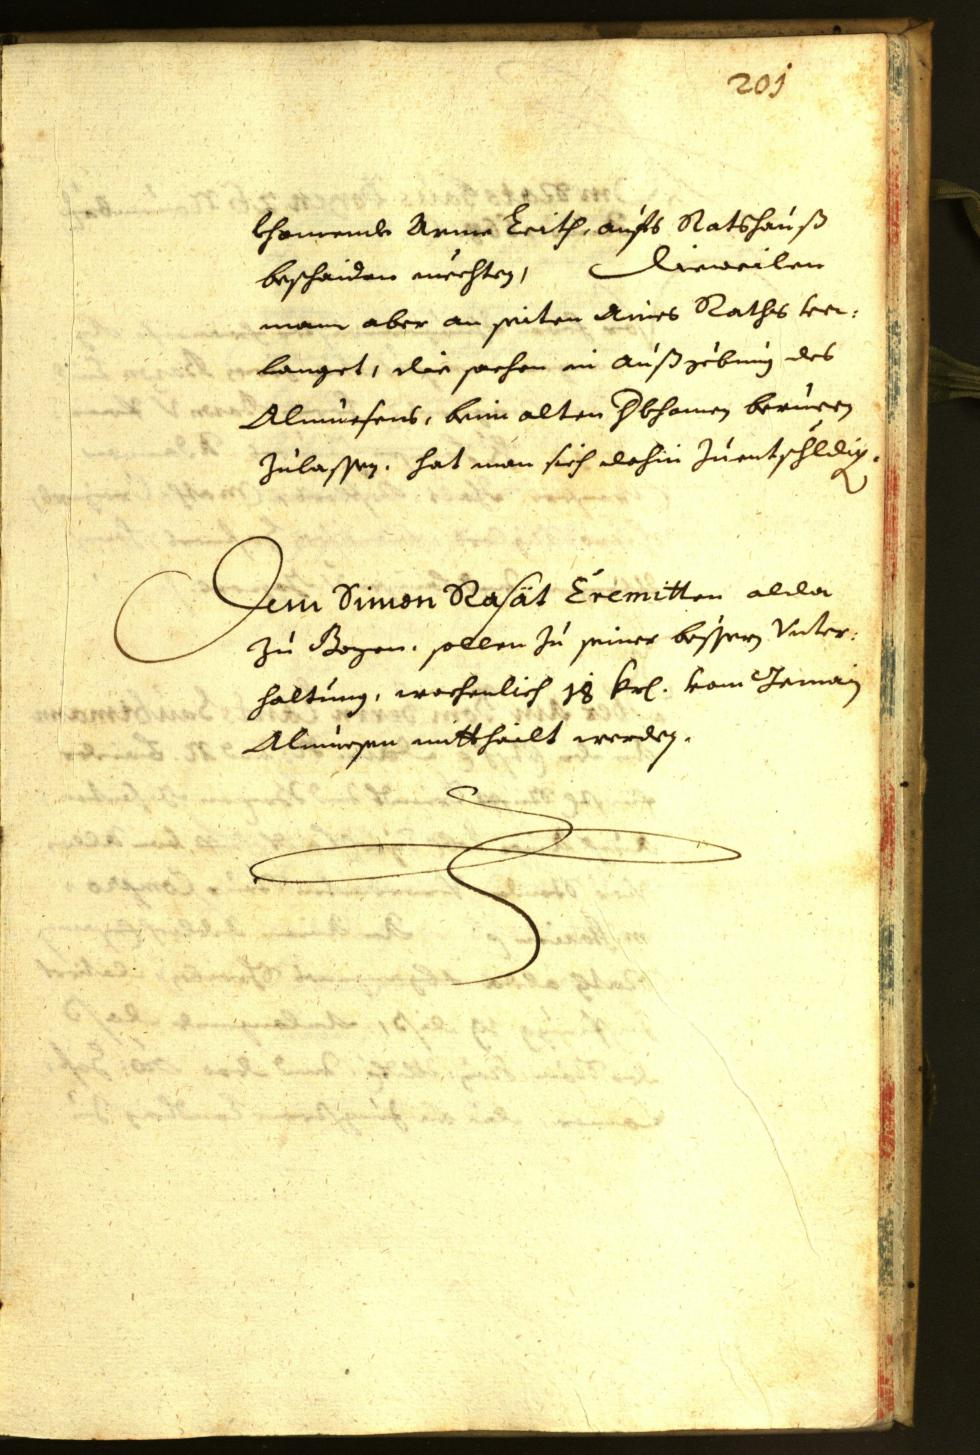 201
khomende Arme Leith, aufs Ratshauß
beschaiden mechten, Dieweilen
mann aber an seiten Aines Raths ver:
langet, die sachen in Außgebung des
Almuesens, beim alten Obkhomen beruen
zulassen. hat man sich dahin zuentschldig.
Dem Simon Rasät Eremitten alda
zu Bozen. sollen zu seiner bessern Vnter:
haltung, wochenlich 18 krl. vom Gemain
Almuesen mitthailt werden.